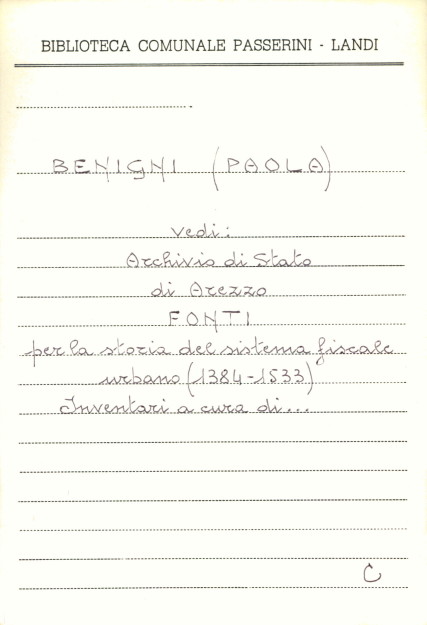 BIBLIOTECA COMUNALE PASSERINI - LANDI
BENIGNI (PAOLA)
vedi:
Archivio di Stato
di Arezzo
FONTI
per la storia del sistema fiscale
urbano (1384-1533)
Inventari a cura di...
C